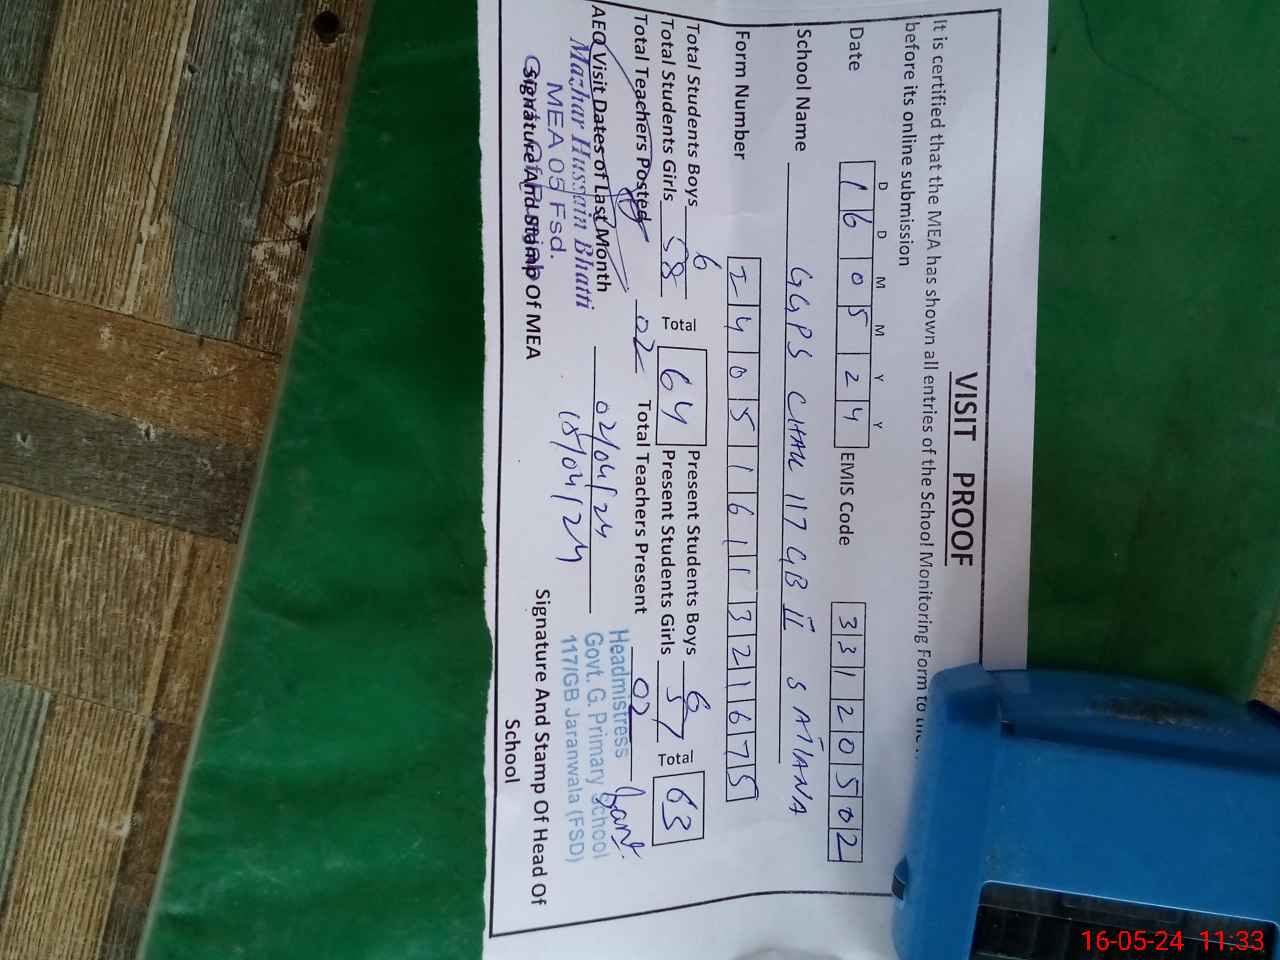 VISIT PROOF
It is certified that the MEA has shown all entries of the School Monitoring Form to the
before its online submission
D D M M Y Y
Date 16 05 24 EMIS Code 33120502
School Name GGPS CHAK 117 GB II SATIANA
Form Number 24051611321675
Total Students Boys 6 Present Students Boys 6
Total Students Girls 58 Total 64 Present Students Girls 57 Total 63
Total Teachers Posted 02 Total Teachers Present 02
AEO Visit Dates of Last Month 02/04/24
15/04/24
Mazhar Hussain Bhatti
MEA 05 Fsd.
Signature And Stamp Of MEA
Headmistress
Govt. G. Primary School
117/GB Jaranwala (FSD)
Signature And Stamp Of Head Of
School
16-05-24 11:33